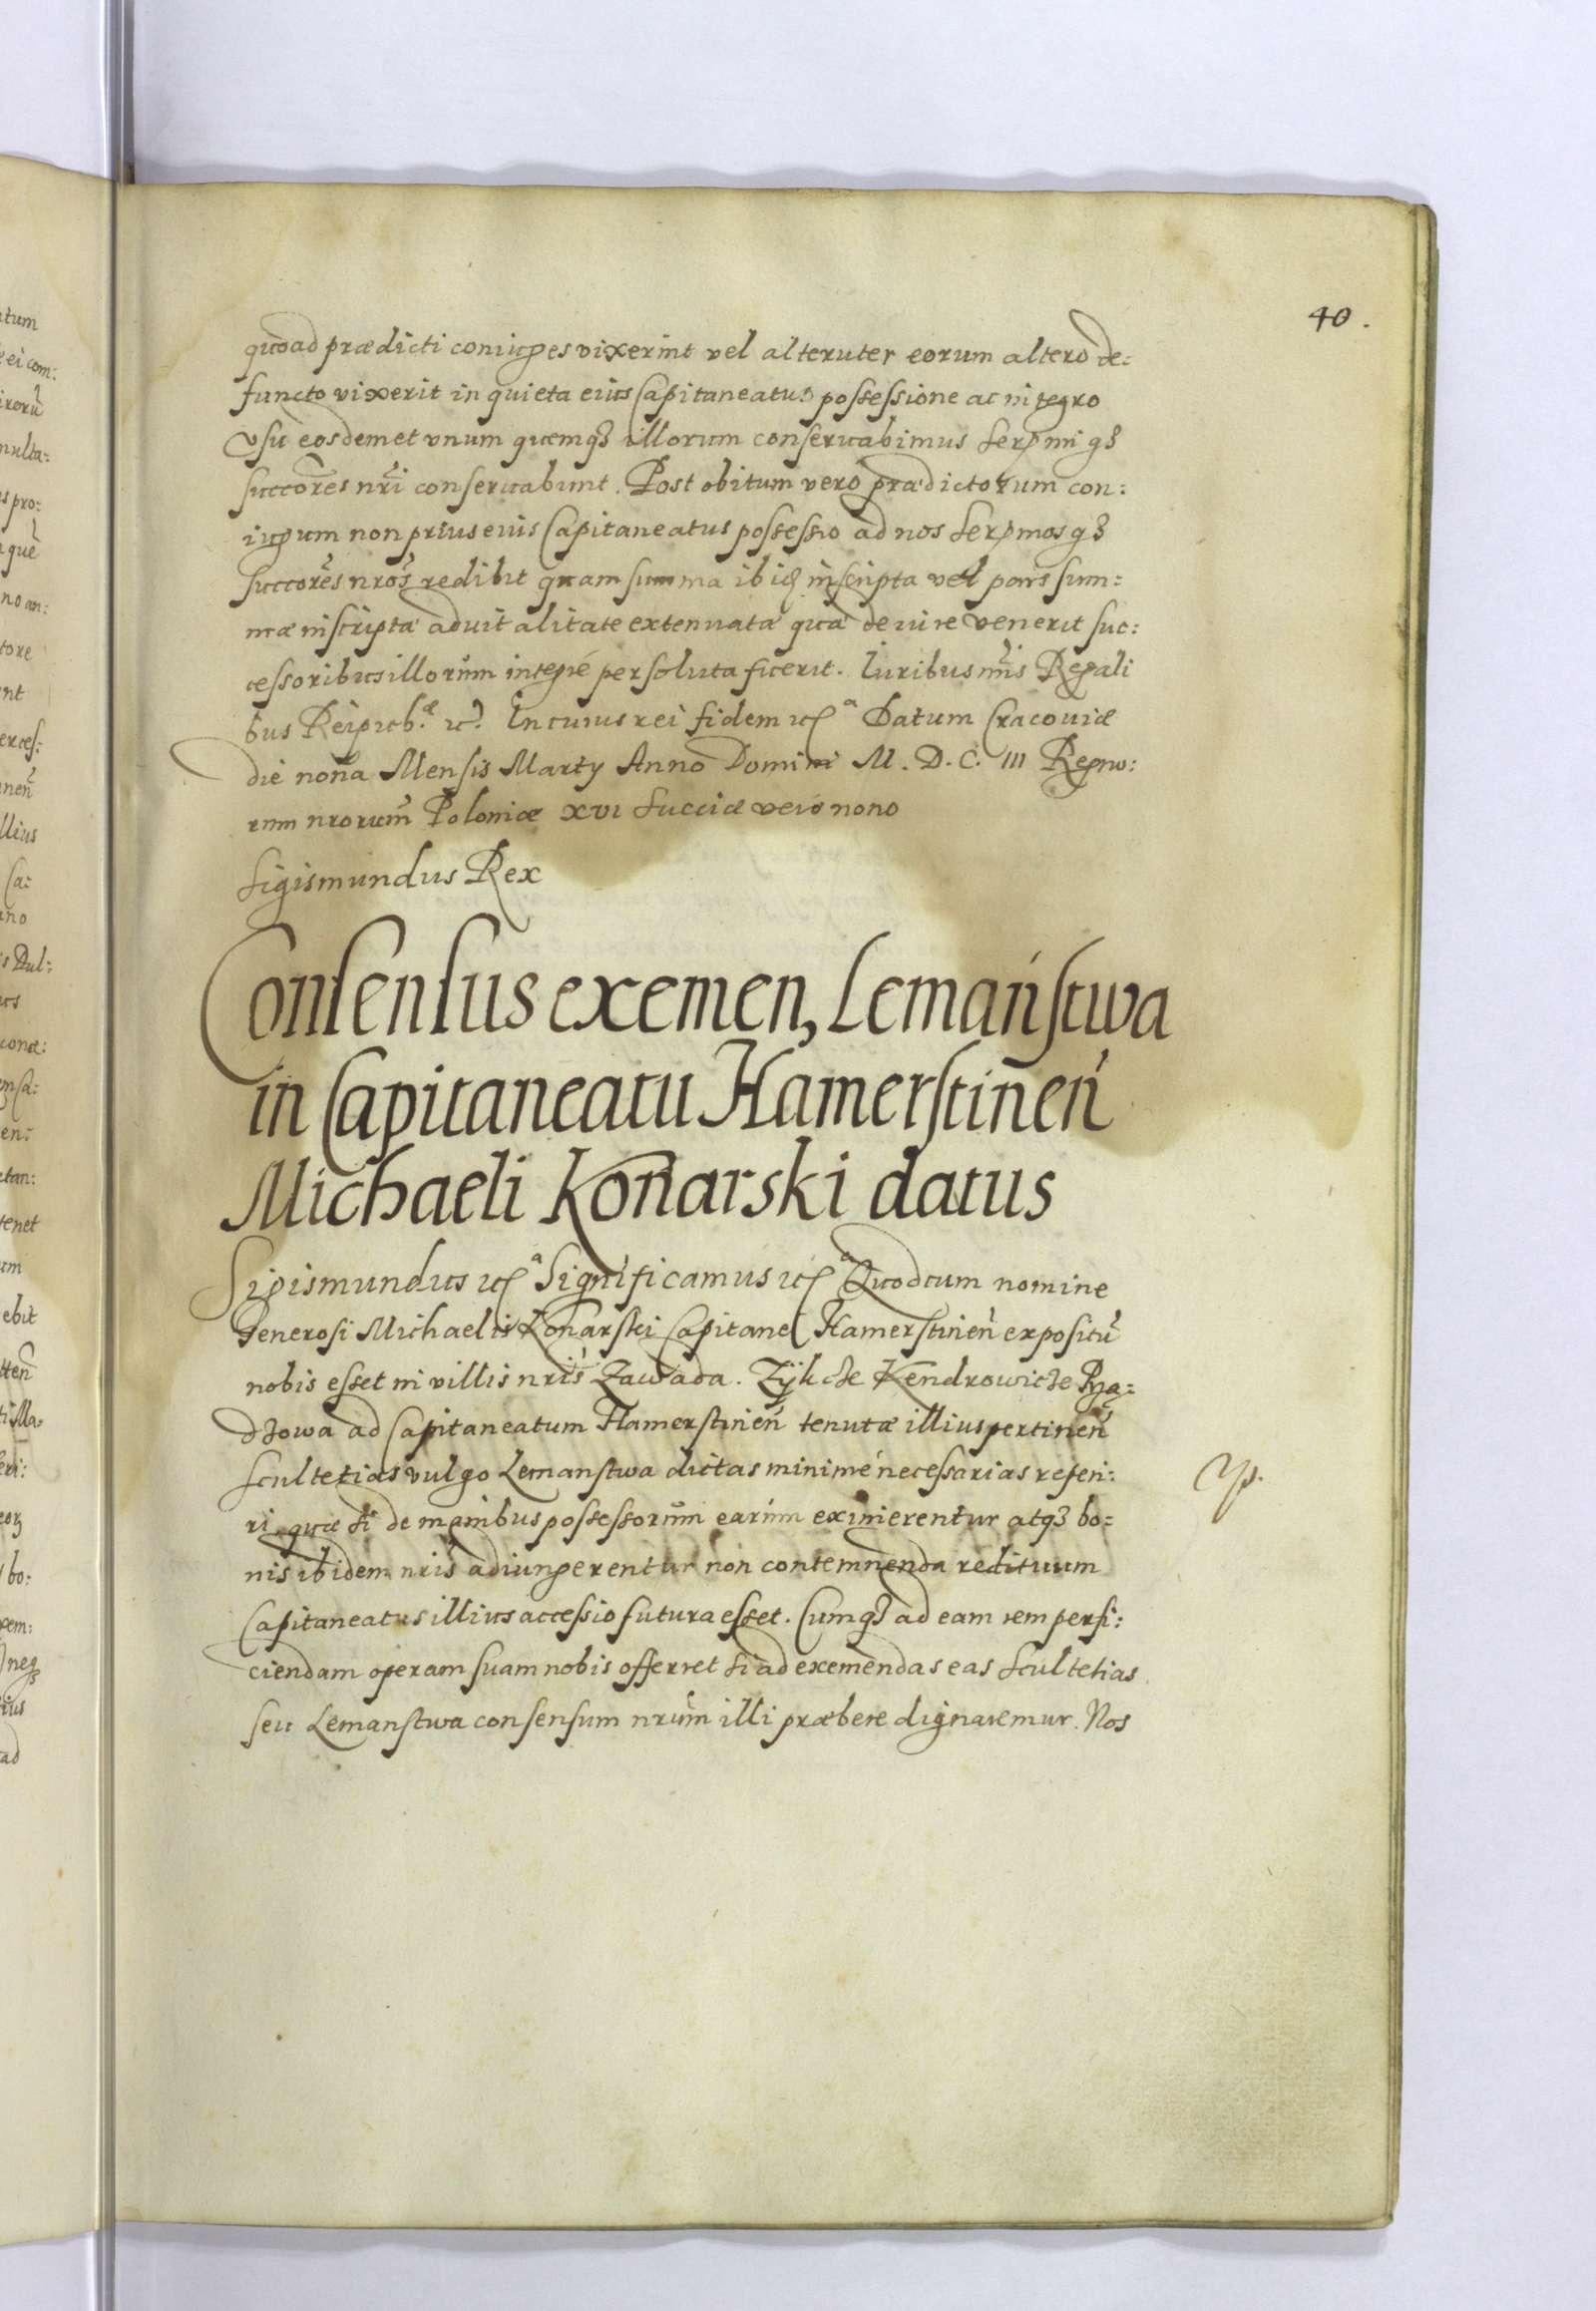 40.
quoad prædicti coniuges vixerint vel alteruter eorum altero de:
functo vixerit in quieta eius Capitaneatus possessione ac integro
vsu eosdem et vnum quemq3 illorum conseruabimus Ser̃mi q3
succõres nr̃i conseruabunt. Post obitum vero prædictorum con:
iugum non prius eius Capitaneatus possessio ad nos Ser̃mos q3
succõres nr̃os redibit quam summa ibid inscripta vel pars sum:
mæ inscriptæ aduitalitate extenuatæ quæ de iure venerit suc:
cessoribus illorum integré persoluta fuerit. Iuribus nr̃is Regali
bus Reipub.æ etc. In cuius rei fidem etc.a Datum Cracouiæ
die nona Mensis Marty Anno Domini M. D. C. III Regno:
rum nrorum̃ Poloniæ XVI Sueciæ vero nono
Sigismundus Rex
Consensus exemen, Lemaństwa
in Capitaneatu Hamerstinen̄
Michaeli Konarski datus
Sigismundus etc.a Significamus etc.a Quod cum nomine
Generosi Michaelis Konarski Capitanei Hamerstinen̄ expositū
nobis esset in villis nris̃ Zawada. Zÿkcze Kendrowicze Pyą:
dzowa ad Capitaneatum Hamerstinen̄ tenutæ illius pertinen̄
scultetias vulgo Lemanstwa dictas minimé necessarias reperi:
ri quæ si de manibus possessorum earum eximerentur atq3 bo:
nis ibidem nris̃ adiungerentur non contemnenda redituum
Capitaneatus illius accessio futura esset. Cumq3 ad eam rem perfi:
ciendam operam suam nobis offerret si ad exemendas eas Scultetias
seu Lemanstwa consensum nrum̃ illi præbere dignaremur. Nos